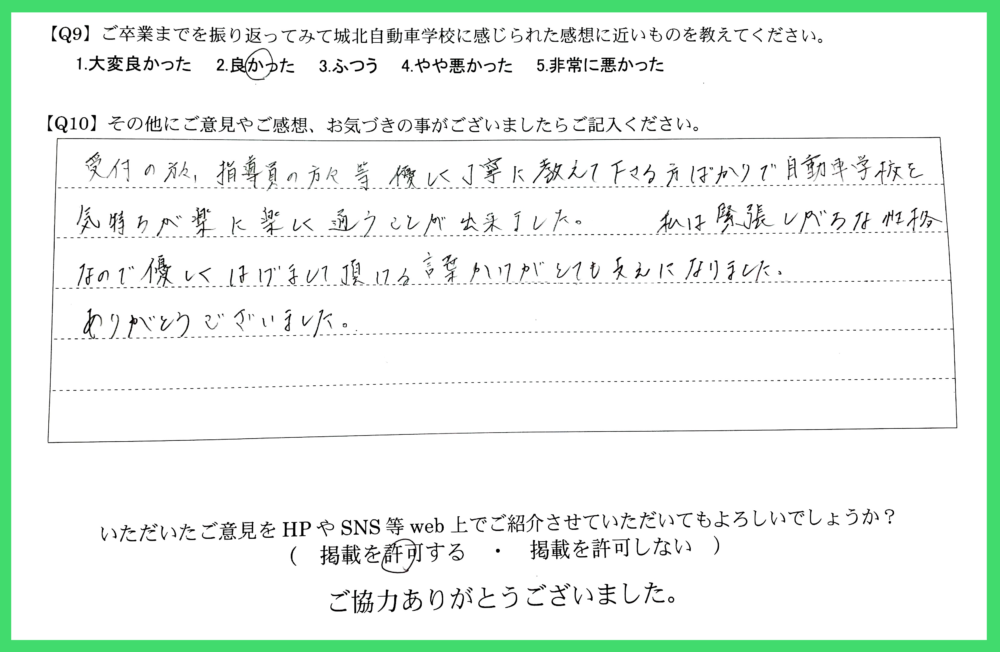 【Q9】ご卒業までを振り返ってみて城北自動車学校に感じられた感想に近いものを教えてください。
1.大変良かった 2.良かった 3.ふつう 4.やや悪かった 5.非常に悪かった
【Q10】その他にご意見やご感想、お気づきの事がございましたらご記入ください。
受付の方々、指導員の方々等 優しく丁寧に教えて下さる方ばかりで自動車学校を
気持ちが楽に楽しく通うことが出来ました。 私は緊張しがちな性格
なので優しくはげまして頂ける言葉かけがとても支えになりました。
ありがとうございました。
いただいたご意見をHPやSNS等web上でご紹介させていただいてもよろしいでしょうか?
( 掲載を許可する ・ 掲載を許可しない )
ご協力ありがとうございました。